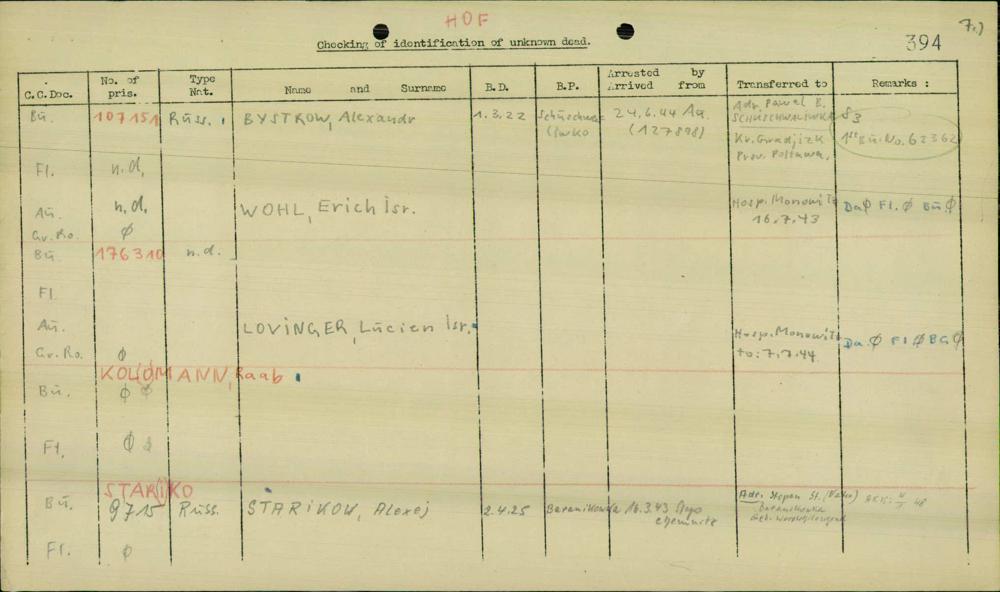 HOF
7.)
Checking of identification of unknown dead.
394
C.C.Doc. No. of pris. Type Nat. Name and Surname B.D. B.P. Arrested by Arrived from Transferred to Remarks :
Bu. 107151 Russ. BYSTROW, Alexandr 1.3.22 24.6.44 Au. (127898) Adr. Pawel B. 83
Kr. Gradjizk 1st Bu. No. 62362
Prov. Poltawa.
Fl. n.d.
Au. n.d. WOHL, Erich Isr. Hosp. Monowitz 16.7.43 Da Ø Fl. Ø Bu. Ø
Gr. Ro. Ø
Bu. 176310 n.d.
Fl.
Au. LOVINGER, Lucien Isr. Hosp. Monowitz to: 7.7.44 Da. Ø Fl Ø BG Ø
Gr. Ro. Ø
KOLIOMANN, Raab
Bu. Ø Ø
Fl. Ø
STARIKO
Bu. 9715 Russ. STARIKOW, Alexej 2.4.25 Baranikowka 16.3.43 Stapo Chemnitz Adr. Stepan St. (Vater)
Baranikowka
Fl. Ø